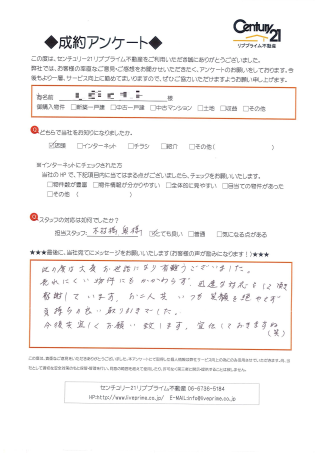 Century 21
リブプライム不動産
◆成約アンケート◆
この度は、センチュリー21リブプライム不動産をご利用いただき誠にありがとうございました。
弊社では、お客様の率直なご意見・ご感想をお聞かせいただきたく、アンケートのお願いをしております。今
後もより一層、サービス向上に努めてまいりますので、ぜひご協力いただけますようお願い申し上げます。
お名前 様
御購入物件 □新築一戸建 □中古一戸建 □中古マンション □土地 □収益 □その他
どちらで当社をお知りになりましたか。
□店頭 □インターネット □チラシ □紹介 □その他( )
※インターネットにチェックされた方
当社のHPで、下記項目内に当てはまる点がございましたら、チェックをお願いします。
□物件数が豊富 □物件情報が分かりやすい □全体的に見やすい □目当ての物件があった
□その他 ( )
スタッフの対応は如何でしたか？
担当スタッフ: 木村 様 □とても良い □普通 □気になる点がある
★★★最後に、当社宛てにメッセージをお願いいたします(お客様の声が励みになります！)★★★
此の度は大変お世話になり有難うございました。
売れにくい物件にもかかわらず、迅速な対応をして頂き
感謝しています。お二人共いつも笑顔を絶やさず
気持ちの良い取引きでした。
今後共宜しくお願い致します。宣伝しておきますね
(笑)
センチュリー21リブプライム不動産 06-6736-5184
HP:http://www.liveprime.co.jp/ E-MAIL:info@liveprime.co.jp